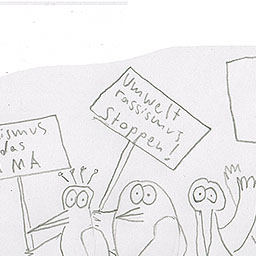 ismus
das
MA
Umwelt
rassismus
Stoppen!